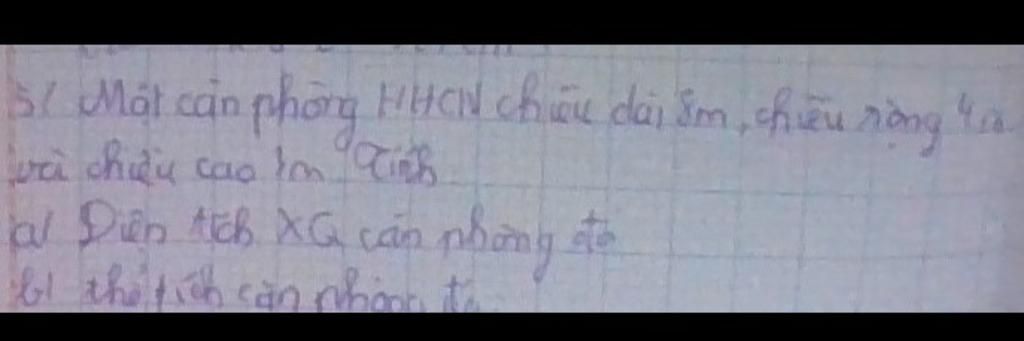 5/ Một căn phòng HHCN chiều dài 8m, chiều rộng 4m
và chiều cao 3m Tính
a/ Diện tích XQ căn phòng đó
b/ thể tích căn phòng đó